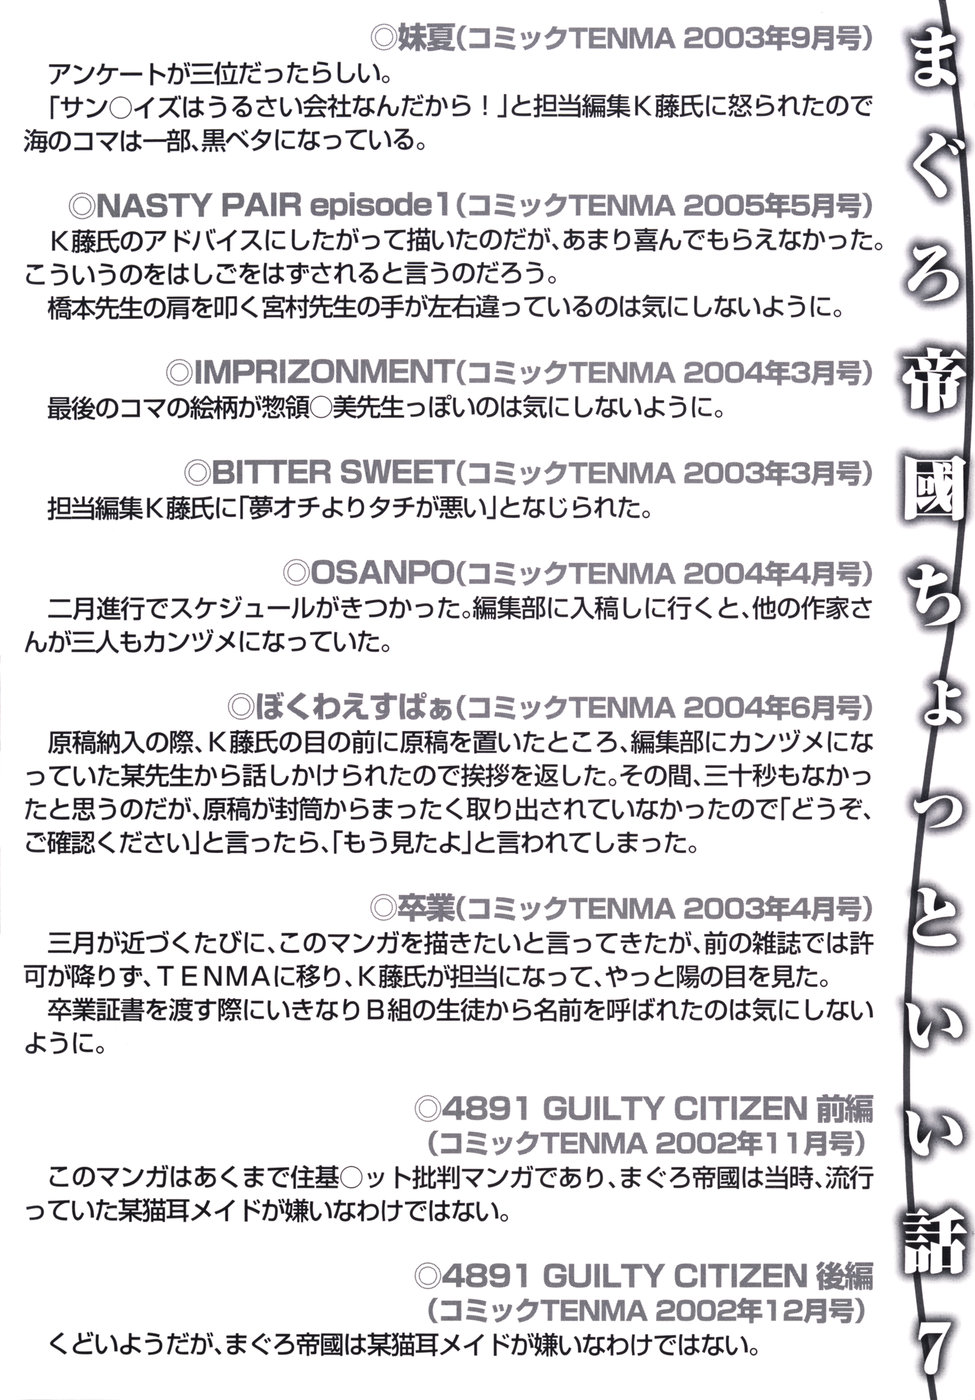 まぐろ帝國ちょっといい話7
◎妹夏(コミックTENMA 2003年9月号)
アンケートが三位だったらしい。
「サン○イズはうるさい会社なんだから！」と担当編集Ｋ藤氏に怒られたので
海のコマは一部、黒ベタになっている。
◎NASTY PAIR episode1(コミックTENMA 2005年5月号)
Ｋ藤氏のアドバイスにしたがって描いたのだが、あまり喜んでもらえなかった。
こういうのをはしごをはずされると言うのだろう。
橋本先生の肩を叩く宮村先生の手が左右違っているのは気にしないように。
◎IMPRIZONMENT(コミックTENMA 2004年3月号)
最後のコマの絵柄が惣領○美先生っぽいのは気にしないように。
◎BITTER SWEET(コミックTENMA 2003年3月号)
担当編集Ｋ藤氏に「夢オチよりタチが悪い」となじられた。
◎OSANPO(コミックTENMA 2004年4月号)
二月進行でスケジュールがきつかった。編集部に入稿しに行くと、他の作家さ
んが三人もカンヅメになっていた。
◎ぼくわえすぱぁ(コミックTENMA 2004年6月号)
原稿納入の際、Ｋ藤氏の目の前に原稿を置いたところ、編集部にカンヅメにな
っていた某先生から話しかけられたので挨拶を返した。その間、三十秒もなかっ
たと思うのだが、原稿が封筒からまったく取り出されていなかったので「どうぞ、
ご確認ください」と言ったら、「もう見たよ」と言われてしまった。
◎卒業(コミックTENMA 2003年4月号)
三月が近づくたびに、このマンガを描きたいと言ってきたが、前の雑誌では許
可が降りず、ＴＥＮＭＡに移り、Ｋ藤氏が担当になって、やっと陽の目を見た。
卒業証書を渡す際にいきなりＢ組の生徒から名前を呼ばれたのは気にしない
ように。
◎4891 GUILTY CITIZEN 前編
(コミックTENMA 2002年11月号)
このマンガはあくまで住基○ット批判マンガであり、まぐろ帝國は当時、流行
っていた某猫耳メイドが嫌いなわけではない。
◎4891 GUILTY CITIZEN 後編
(コミックTENMA 2002年12月号)
くどいようだが、まぐろ帝國は某猫耳メイドが嫌いなわけではない。